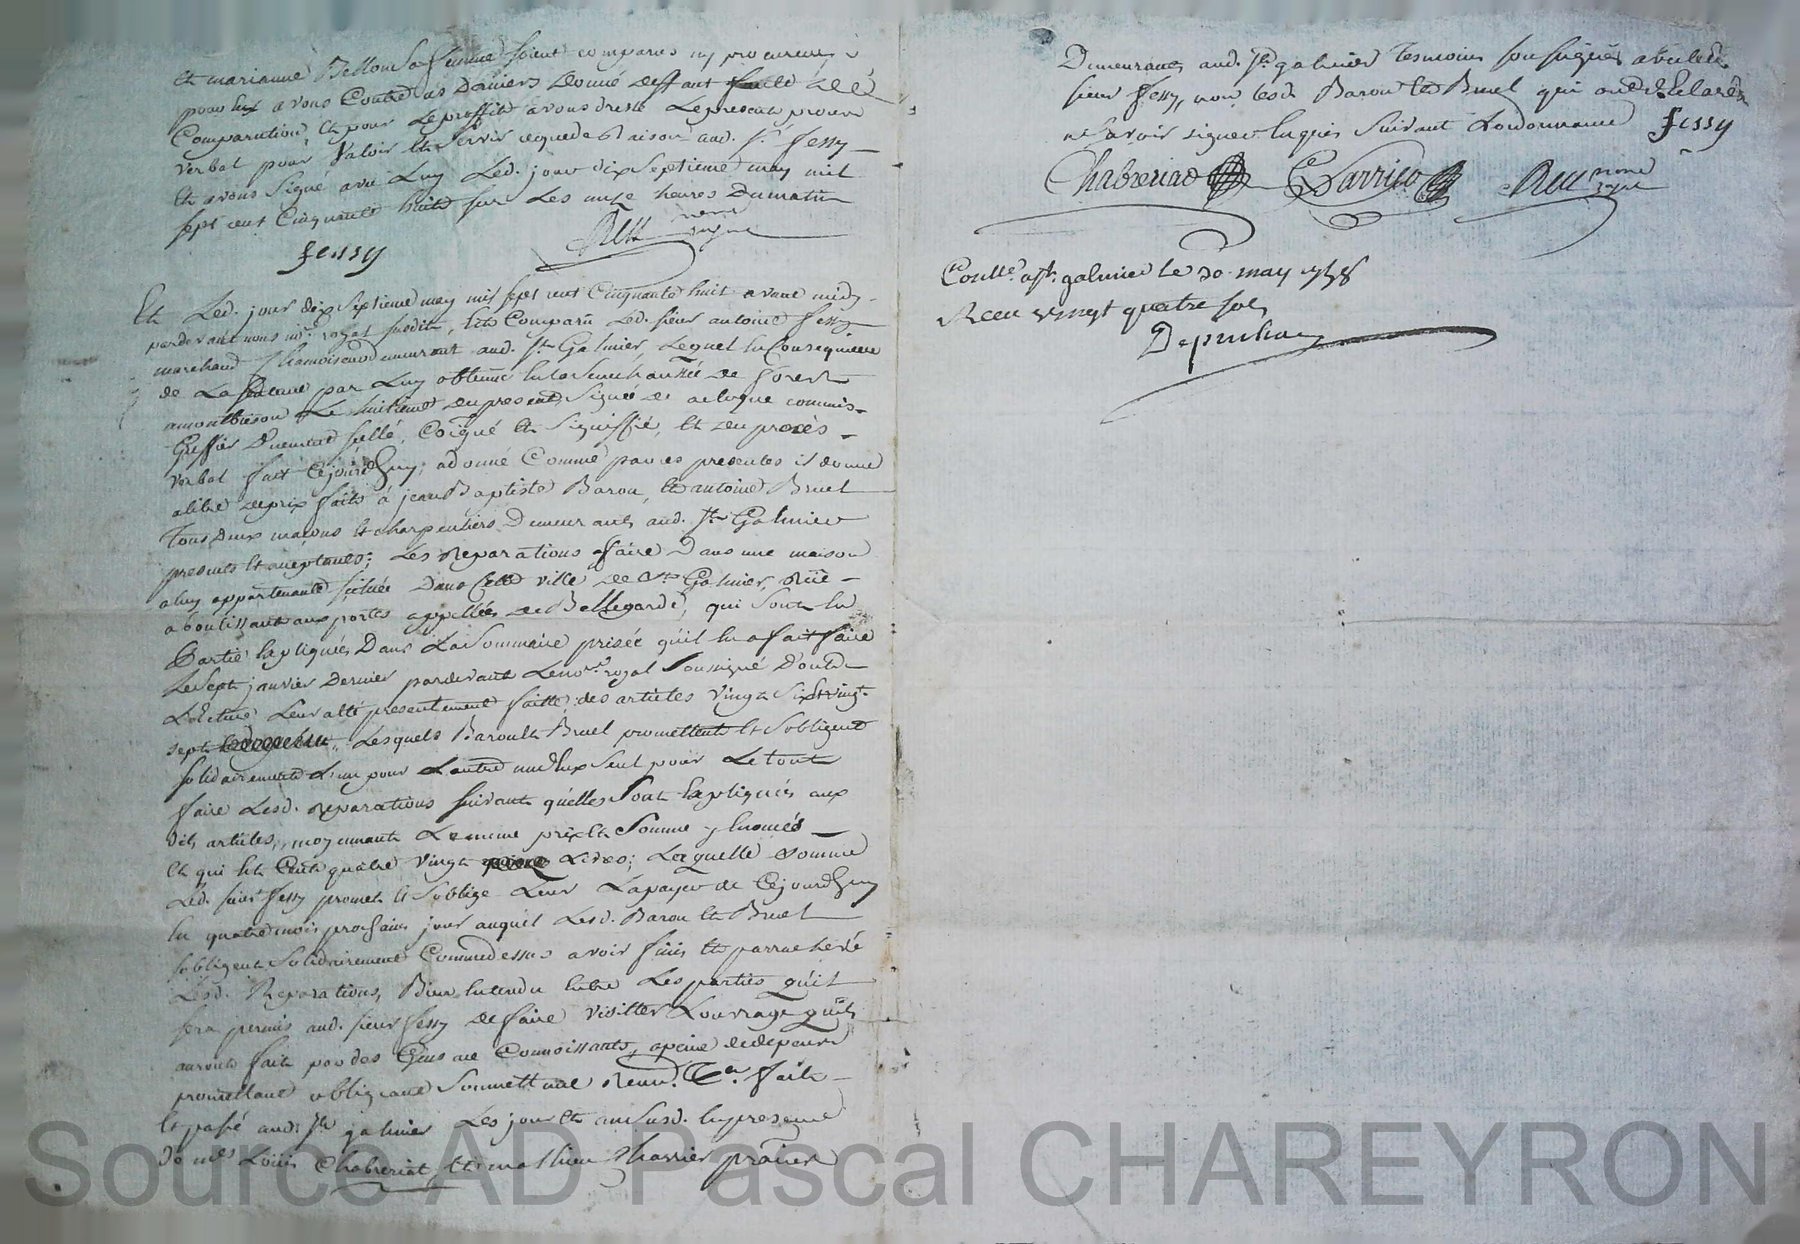 et marianne Bellon Sa femme soient comparus ny procureur
pour Eux avons Contre ces Derniers donné deffaut faute de
Comparution Et pour Le proffit avons dressé Le present procés
verbal pour Valoir Et servir ce que de Raison aud. Sr. fessy
Et avons Signé avec Luy Led. jour dix septieme may mil
sept cent Cinquante huit sur Les onze heures Du matin
fessy
Et Led. jour dix septieme may mil sept cent Cinquante huit avant midy
pardevant nous nore. royal susdit, Est Comparu Led. sieur antoine fessy
marchand Chamoiseur demeurant aud. St. Galmier Lequel En Consequence
de La sentence par Luy obtenue En La senechaussée de forest
a montbrison Le huitieme du present, Signée commis
Greffier Duement sellé, Coiqué Et Signiffié, Et du procès
verbal fait Cejourd'huy; a donné Comme par ces presentes il donne
a titre de prix fait à jean Baptiste Barou, Et antoine Bruel
Tous deux maçons Et charpentiers Demeurants aud. St. Galmier
presents Et acceptants; Les Reparations a faire Dans une maison
a luy appartenante scituée Dans Cette ville de St. Galmier, Rüe
aboutissant aux portes appellées de Bellegarde, qui sont En
Partie Expliquées Dans La Sommaire prisée qu'il En a fait faire
Le Sept janvier Dernier pardevant Le nore. royal Soussigné Dont
Lecture Leur a été presentement faitte des articles vingt six Et vingt
sept Lesquels Barou Et Bruel promettent Et s'obligent
solidairement L'un pour L'autre un d'Eux seul pour Le tout
faire Lesd. Reparations suivant qu'elles sont Expliquées aux
dits articles, moyennant Le meme prix Et Somme y Enoncés
Et qui Est Cent quatre vingt Livres; Laquelle Somme
Led. sieur fessy promet Et s'oblige Leur La payer de Cejourd'huy
En quatre mois prochains jour auquel Lesd. Barou Et Bruel
s'obligent solidairement Comme dessus avoir finis Et parrachevé
Lesd. Reparations, Bien Entendu Entre Les parties qu'il
sera permis aud. sieur fessy de faire visitter L'ouvrage qu'ils
auront fait par des Gens ace Connoissants, a peine de depens
promettant obligeant Soumettant Renon. Ca. fait
Et passé aud. St. galmier Les jour Et an susd. En presence
de mes Loüis Chabreriat Et mathieu Charrier
Demeurants aud. St. galmier Temoins soussignés avec led.
sieur fessy, non Lesd. Barou Et Bruel qui ont déclaré
ne savoir signer Enquis Suivant L'ordonnance fessy
Chabreriat
Conlle. a St. galmier le 30 may 1758
Receu vingt quatre sols
Source AD Pascal CHAREYRON